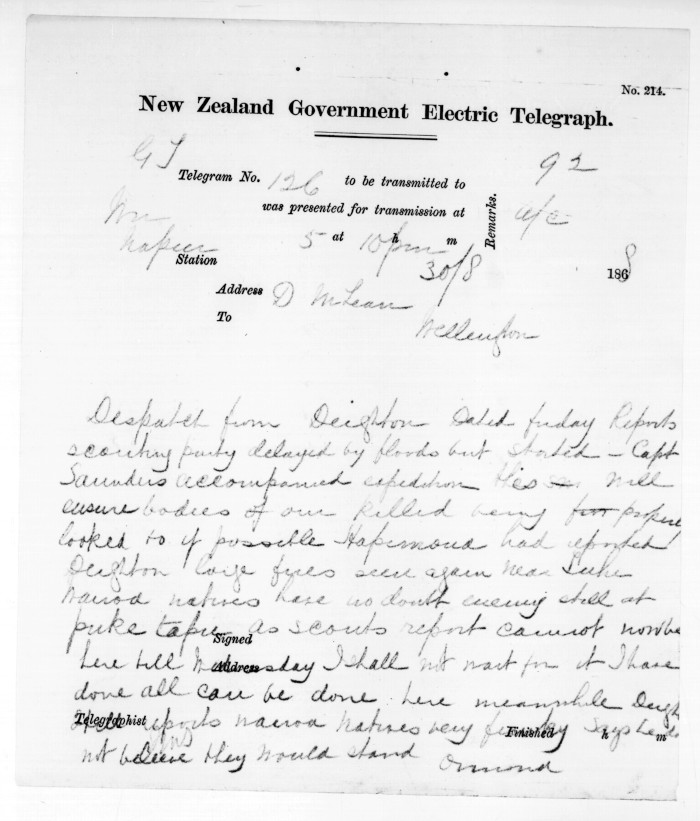 No. 214.
New Zealand Government Electric Telegraph.
GT
92
Telegram No. 126 to be transmitted to
was presented for transmission at
Remarks.
Napier
5 at 10 h pm m
Station
30/8 1868
Address D McLean
To
Wellington
Despatch from Deighton dated friday Reports
scouting party delayed by floods but started - Capt
Saunders accompanied expedition this will
ensure bodies of our killed being
looked to if possible had reported
Deighton large fires seen again near
Wairoa natives have no doubt enemy still at
puke tapu as scouts report cannot now be
Signed
here till Wednesday I shall not wait for it I have
Address
done all can be done here meanwhile Deigh
Telegraphist
reports Wairoa Natives very says he do
Finished h m
not believe they would stand Ormond